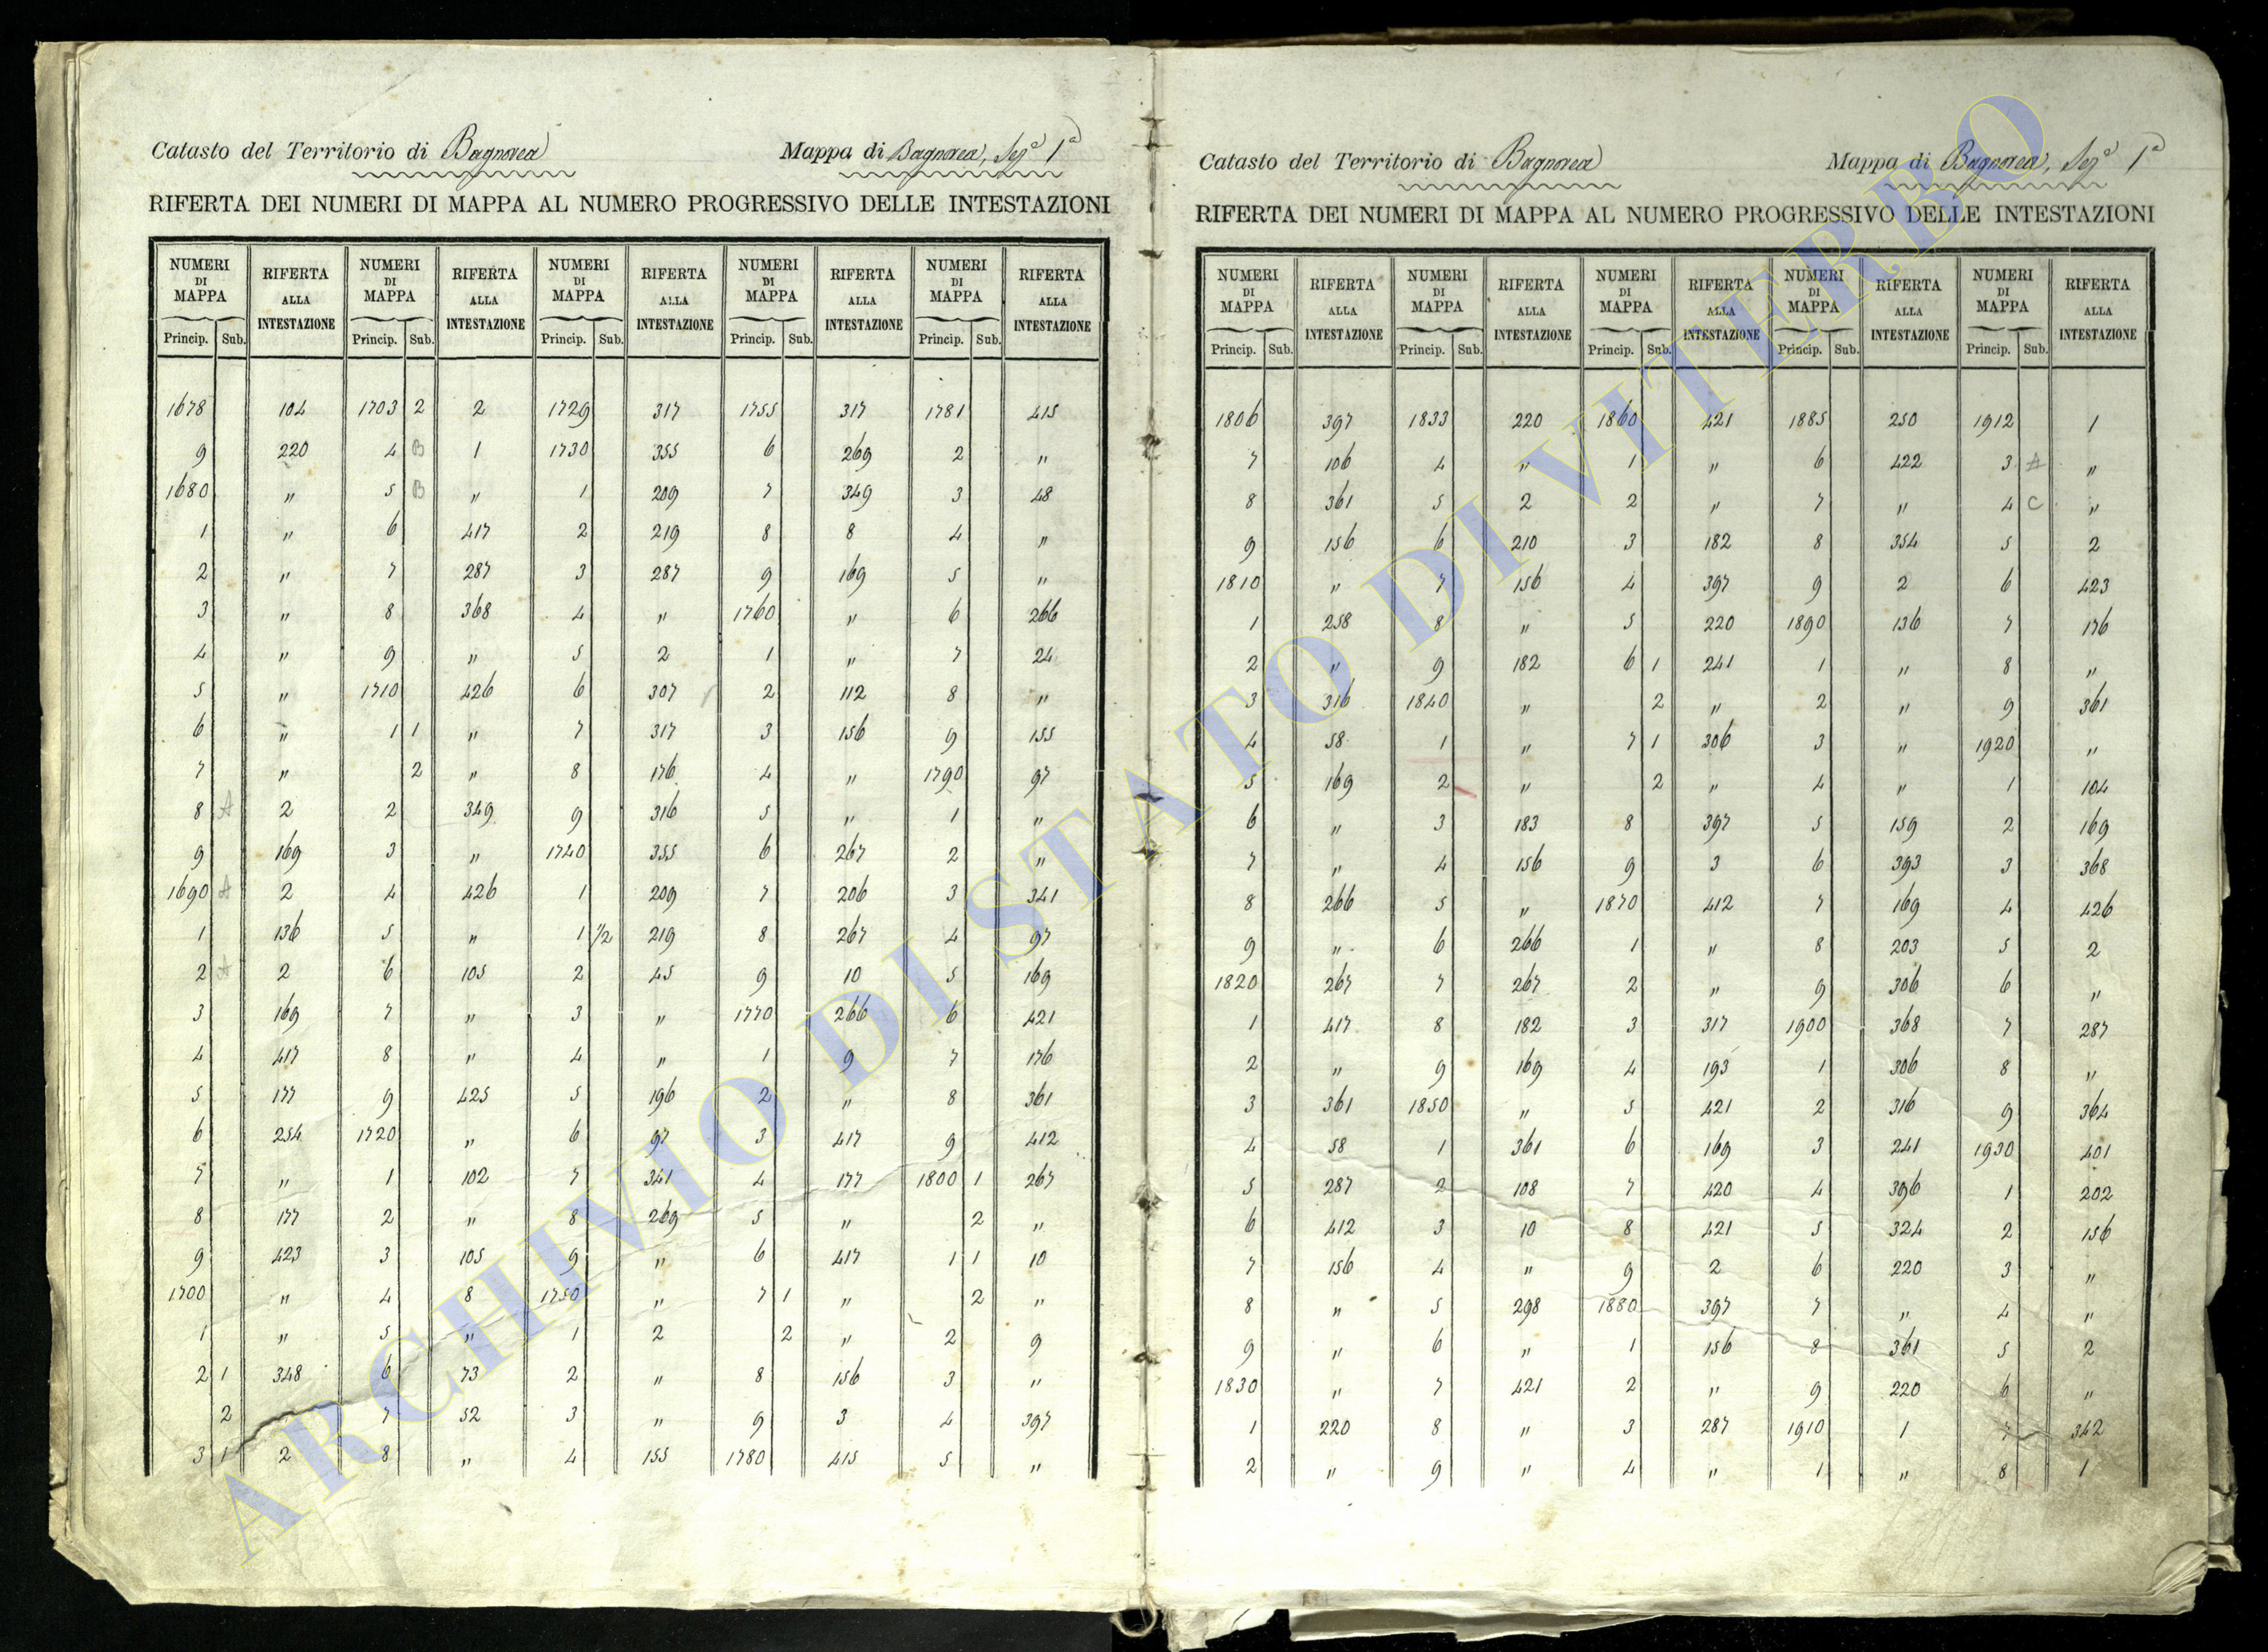 Catasto del Territorio di Bagnorea Mappa di Bagnorea, Sez.a 1a
RIFERTA DEI NUMERI DI MAPPA AL NUMERO PROGRESSIVO DELLE INTESTAZIONI
NUMERI DI MAPPA RIFERTA ALLA INTESTAZIONE NUMERI DI MAPPA RIFERTA ALLA INTESTAZIONE NUMERI DI MAPPA RIFERTA ALLA INTESTAZIONE NUMERI DI MAPPA RIFERTA ALLA INTESTAZIONE NUMERI DI MAPPA RIFERTA ALLA INTESTAZIONE
Princip. Sub. Princip. Sub. Princip. Sub. Princip. Sub. Princip. Sub.
1678 104 1703 2 2 1729 317 1755 317 1781 415
9 220 4 B 1 1730 355 6 269 2 "
1680 " 5 B " 1 209 7 349 3 48
1 " 6 417 2 219 8 8 4 "
2 " 7 287 3 287 9 169 5 "
3 " 8 368 4 " 1760 " 6 266
4 " 9 " 5 2 1 " 7 24
5 " 1710 426 6 307 2 112 8 "
6 " 1 1 " 7 317 3 156 9 155
7 " 2 " 8 176 4 " 1790 97
8 A 2 2 349 9 316 5 " 1 "
9 169 3 " 1740 355 6 267 2 "
1690 A 2 4 426 1 209 7 206 3 341
1 136 5 " 1 1/2 219 8 267 4 97
2 A 2 6 105 2 45 9 10 5 169
3 169 7 " 3 " 1770 266 6 421
4 417 8 " 4 " 1 9 7 176
5 177 9 425 5 196 2 " 8 361
6 254 1720 " 6 97 3 417 9 412
7 " 1 102 7 341 4 177 1800 1 267
8 177 2 " 8 269 5 " 2 "
9 423 3 105 9 " 6 417 1 1 10
1700 " 4 8 1750 " 7 1 " 2 "
1 " 5 " 1 2 2 " 2 9
2 1 348 6 73 2 " 8 156 3 "
2 7 52 3 " 9 3 4 397
3 1 2 8 " 4 155 1780 415 5 "
Catasto del Territorio di Bagnorea Mappa di Bagnorea, Sez.a 1a
RIFERTA DEI NUMERI DI MAPPA AL NUMERO PROGRESSIVO DELLE INTESTAZIONI
NUMERI DI MAPPA RIFERTA ALLA INTESTAZIONE NUMERI DI MAPPA RIFERTA ALLA INTESTAZIONE NUMERI DI MAPPA RIFERTA ALLA INTESTAZIONE NUMERI DI MAPPA RIFERTA ALLA INTESTAZIONE NUMERI DI MAPPA RIFERTA ALLA INTESTAZIONE
Princip. Sub. Princip. Sub. Princip. Sub. Princip. Sub. Princip. Sub.
1806 397 1833 220 1860 421 1885 250 1912 1
7 106 4 " 1 " 6 422 3 A "
8 361 5 2 2 " 7 " 4 C "
9 156 6 210 3 182 8 354 5 2
1810 " 7 156 4 397 9 2 6 423
1 258 8 " 5 220 1890 136 7 176
2 " 9 182 6 1 241 1 " 8 "
3 316 1840 " 2 " 2 " 9 361
4 58 1 " 7 1 306 3 " 1920 "
5 169 2 " 2 " 4 " 1 104
6 " 3 183 8 397 5 159 2 169
7 " 4 156 9 3 6 393 3 368
8 266 5 " 1870 412 7 169 4 426
9 " 6 266 1 " 8 203 5 2
1820 267 7 267 2 " 9 306 6 "
1 417 8 182 3 317 1900 368 7 287
2 " 9 169 4 193 1 306 8 "
3 361 1850 " 5 421 2 316 9 364
4 58 1 361 6 169 3 241 1930 401
5 287 2 108 7 420 4 396 1 202
6 412 3 10 8 421 5 324 2 156
7 156 4 " 9 2 6 220 3 "
8 " 5 298 1880 397 7 " 4 "
9 " 6 " 1 156 8 361 5 2
1830 " 7 421 2 " 9 220 6 "
1 220 8 " 3 287 1910 1 7 342
2 " 9 " 4 " 1 " 8 1
ARCHIVIO DI STATO DI VITERBO